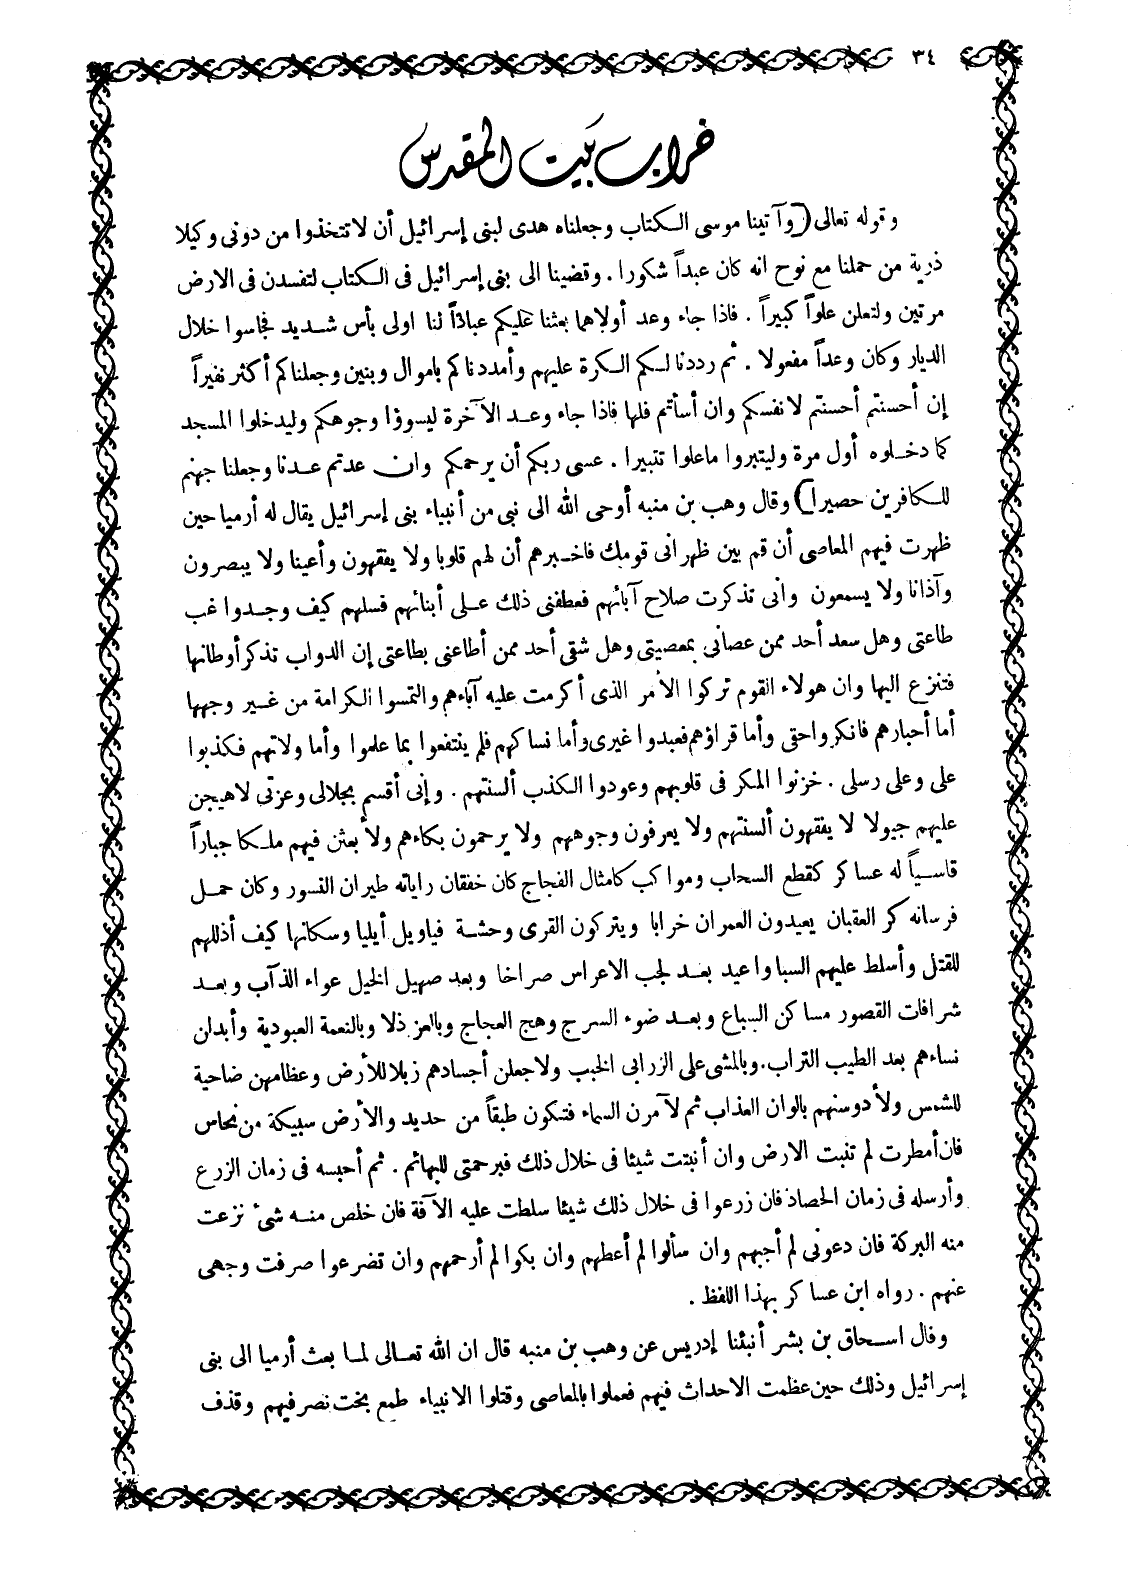 ٣٤
خراب بيت المقدس
وقوله تعالى (وآتينا موسى الكتاب وجعلناه هدى لبنى إسرائيل أن لا تتخذوا من دونى وكيلا
ذرية من حملنا مع نوح انه كان عبداً شكورا . وقضينا الى بنى إسرائيل فى الكتاب لتفسدن فى الارض
مرتين ولتعلن علواً كبيراً . فاذا جاء وعد أولاهما بعثنا عليكم عباداً لنا اولى بأس شديد فجاسوا خلال
الديار وكان وعداً مفعولا . ثم رددنا لكم الكرة عليهم وأمددناكم باموال وبنين وجعلناكم أكثر نفيراً
إن أحسنتم أحسنتم لانفسكم وان أسأتم فلها فاذا جاء وعد الآخرة ليسوؤا وجوهكم وليدخلوا المسجد
كما دخلوه أول مرة وليتبروا ماعلوا تتبيرا . عسى ربكم أن يرحمكم وان عدتم عدنا وجعلنا جهنم
للكافرين حصيرا) وقال وهب بن منبه أوحى الله الى نبى من أنبياء بنى إسرائيل يقال له أرميا حين
ظهرت فيهم المعاصى أن قم بين ظهرانى قومك فاخبرهم أن لهم قلوبا ولا يفقهون وأعينا ولا يبصرون
وآذانا ولا يسمعون وانى تذكرت صلاح آبائهم فعطفنى ذلك على أبنائهم فسلهم كيف وجدوا غب
طاعتى وهل سعد أحد ممن عصانى بمعصيتى وهل شقى أحد ممن أطاعنى بطاعتى إن الدواب تذكر أوطانها
فتنزع اليها وان هولاء القوم تركوا الأمر الذى أكرمت عليه آباءهم والتمسوا الكرامة من غير وجهها
أما أحبارهم فانكروا حقى وأما قراؤهم فعبدوا غيرى وأما نساكهم فلم ينتفعوا بما علموا وأما ولاتهم فكذبوا
على وعلى رسلى . خزنوا المكر فى قلوبهم وعودوا الكذب ألسنتهم . وإنى أقسم بجلالى وعزتى لاهيجن
عليهم جيولا لا يفقهون ألسنتهم ولا يعرفون وجوههم ولا يرحمون بكاءهم ولأبعثن فيهم ملكا جباراً
قاسياً له عساكر كقطع السحاب ومواكب كامثال الفجاج كان خفقان راياته طيران النسور وكان حمل
فرسانه كر العقبان يعيدون العمران خرابا ويتركون القرى وحشة فياويل أيليا وسكانها كيف أذللهم
للقتل وأسلط عليهم السبا واعيد بعد لجب الاعراس صراخا وبعد صهيل الخيل عواء الذآب وبعد
شرافات القصور مساكن السباع وبعد ضوء السرج وهج العجاج وبالعز ذلا وبالنعمة العبودية وأبدلن
نساءهم بعد الطيب التراب. وبالمشى على الزرابى الخبب ولاجعلن أجسادهم زبلا للأرض وعظامهن ضاحية
للشمس ولأدوسنهم بالوان العذاب ثم لآمرن السماء فتكون طبقاً من حديد والأرض سبيكة من نحاس
فان أمطرت لم تنبت الارض وان أنبتت شيئا فى خلال ذلك فبرحمتى للبهائم . ثم أحبسه فى زمان الزرع
وأرسله فى زمان الحصاد فان زرعوا فى خلال ذلك شيئا سلطت عليه الآفة فان خلص منه شئ نزعت
منه البركة فان دعونى لم أجبهم وان سألوا لم أعطهم وان بكوا لم أرحمهم وان تضرعوا صرفت وجهى
عنهم . رواه ابن عساكر بهذا اللفظ .
وقال اسحاق بن بشر أنبئنا إدريس عن وهب بن منبه قال ان الله تعالى لما بعث أرميا الى بنى
إسرائيل وذلك حين عظمت الاحداث فيهم فعملوا بالمعاصى وقتلوا الانبياء طمع بخت نصر فيهم وقذف